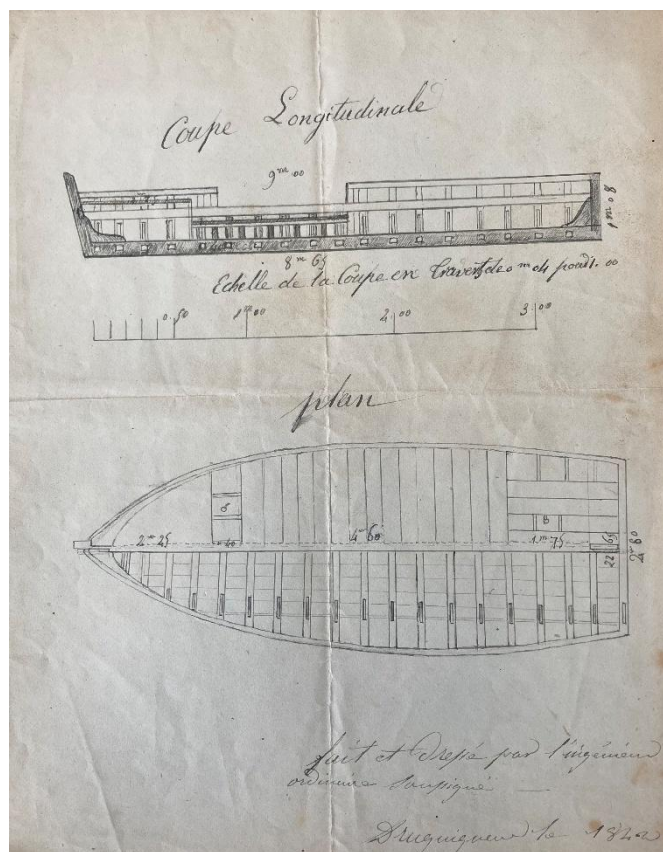 Coupe Longitudinale
9 m 00
1 m 08
8 m 65
Echelle de la Coupe en Travers de 0 m 04 pour 1. 00
0.50 1 m 00 2. 00 3. 00
plan
2 m 25 4 m 60 1 m 75
B
2 m 80
fait et dressé par l'ingénieur
ordinaire soussigné
le 1822